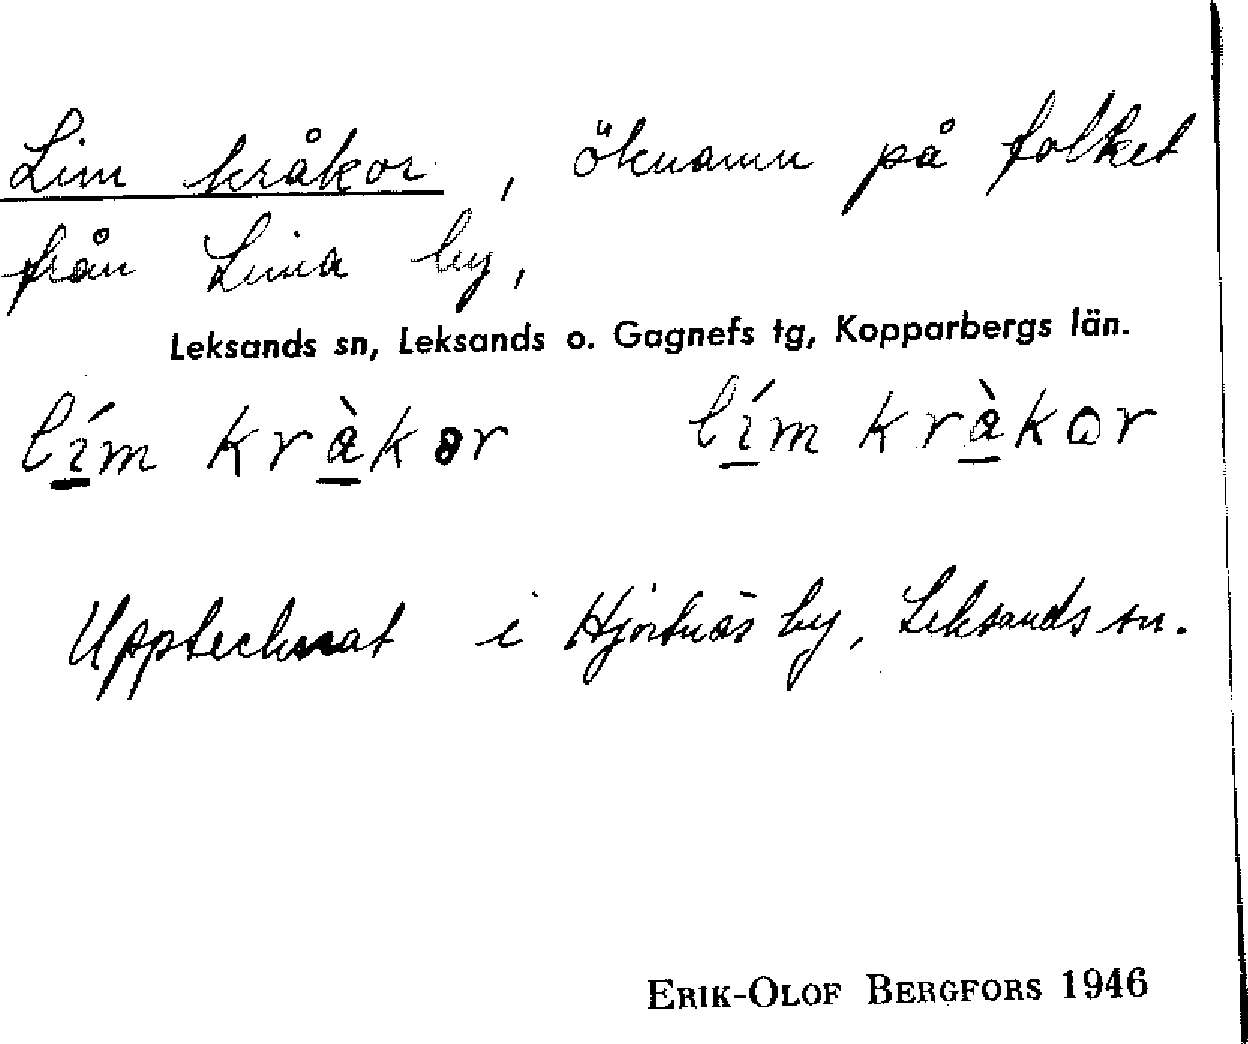 Lim kråkor, öknamn på folket
från Lima by,
Leksands sn, Leksands o. Gagnefs tg, Kopparbergs län.
lím kràkər lím kràkor
Upptecknat i Hjortnäs by, Leksands sn.
ERIK-OLOF BERGFORS 1946